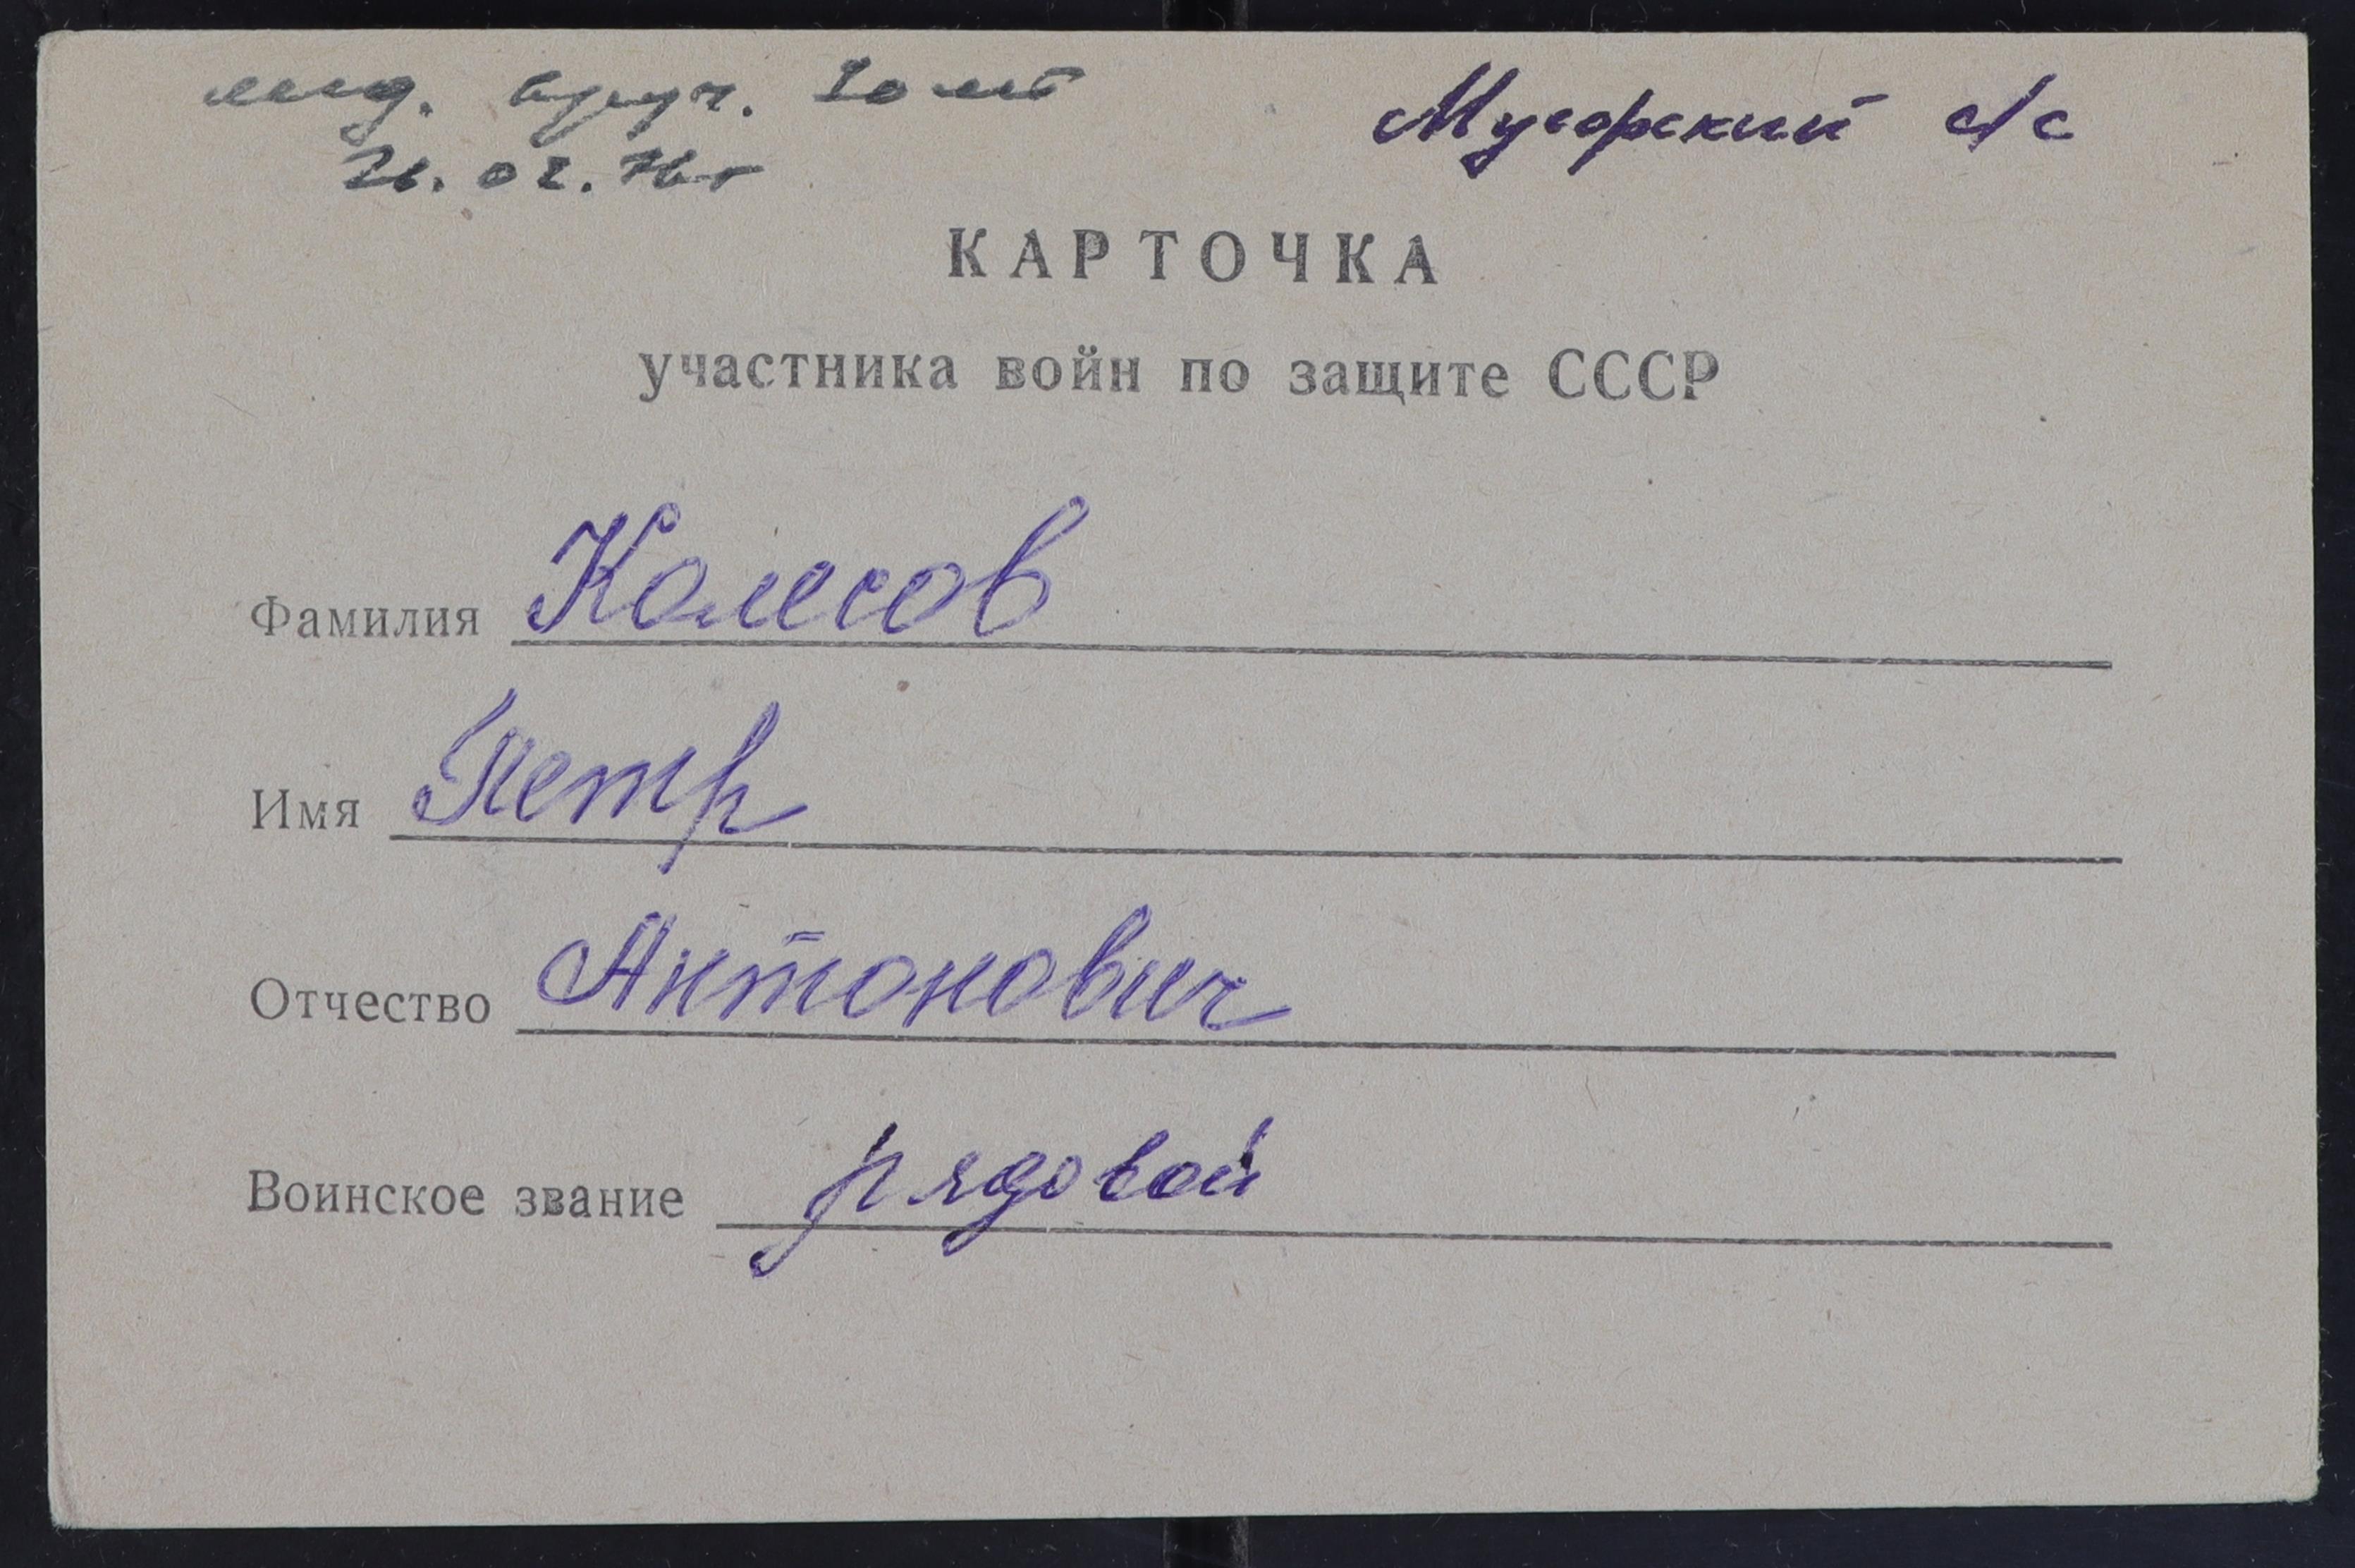 мед. вруч. 30 лет
26.02.76г
Мусорский с/с
КАРТОЧКА
участника войн по защите СССР
Фамилия Колесов
Имя Петр
Отчество Антонович
Воинское звание рядовой